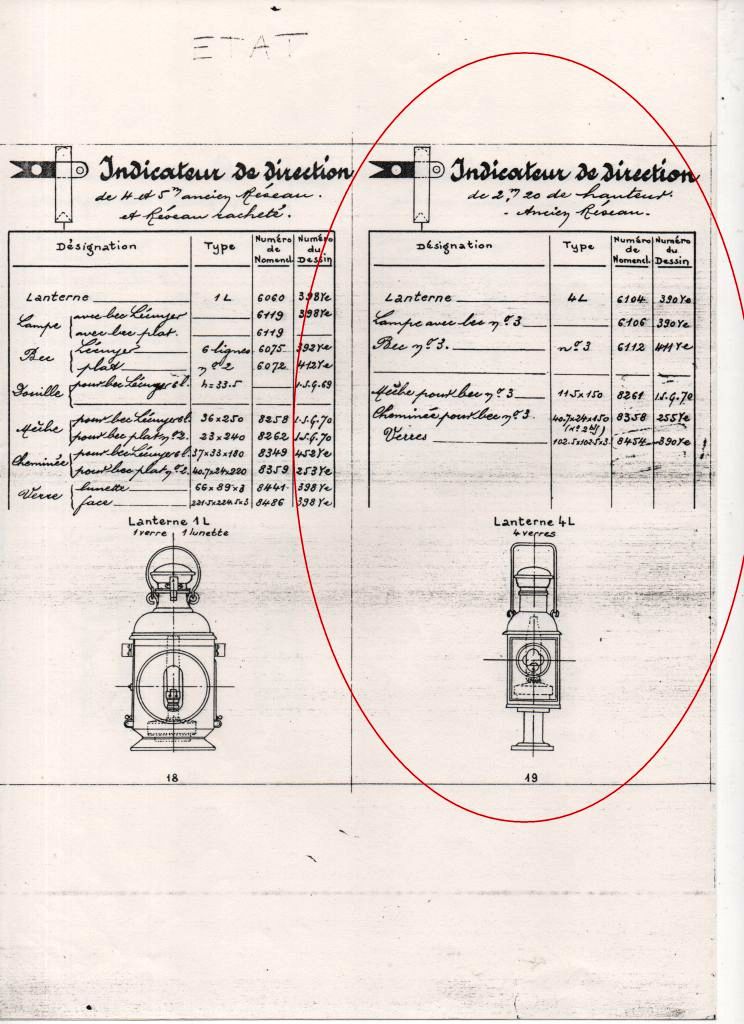 ETAT
Indicateur de direction
de 4 et 5m ancien Réseau.
et Réseau racheté.
Désignation Type Numéro de Nomencl. Numéro du Dessin
Lanterne 1L 6060 398Ve
Lampe { avec bec Léemyer 6119 398Ve
avec bec plat. 6119
Bec { Léemyer 6 lignes 6075 392Ve
plat nº2 6072 412Ve
Douille { pour bec Léemyer 6l. h=33.5 I.S.G.69
Mèche { pour bec Léemyer 6l. 36x250 8258 I.S.G.70
pour bec plat nº2. 23x240 8262 I.S.G.70
Cheminée { pour bec Léemyer 6l. 37x33x180 8349 452Ve
pour bec plat nº2. 40.7x24x220 8359 253Ve
Verre { lunette 66x89x3 8441 398Ve
face 221.5x224.5x3 8486 398Ve
Lanterne 1L
1 verre 1 lunette
18
Indicateur de direction
de 2,m20 de hauteur.
- Ancien Réseau.-
Désignation Type Numéro de Nomencl. Numéro du Dessin
Lanterne 4L 6104 390Ve
Lampe avec bec nº3 6106 390Ve
Bec nº3. nº3 6112 411Ve
Mèche pour bec nº3 11.5x150 8261 I.S.G.70
Cheminée pour bec nº3. 40.7x24x150 8358 255Ve
(nº2bis)
Verres 102.5x102.5x3 8454 390Ve
Lanterne 4L
4 verres
19